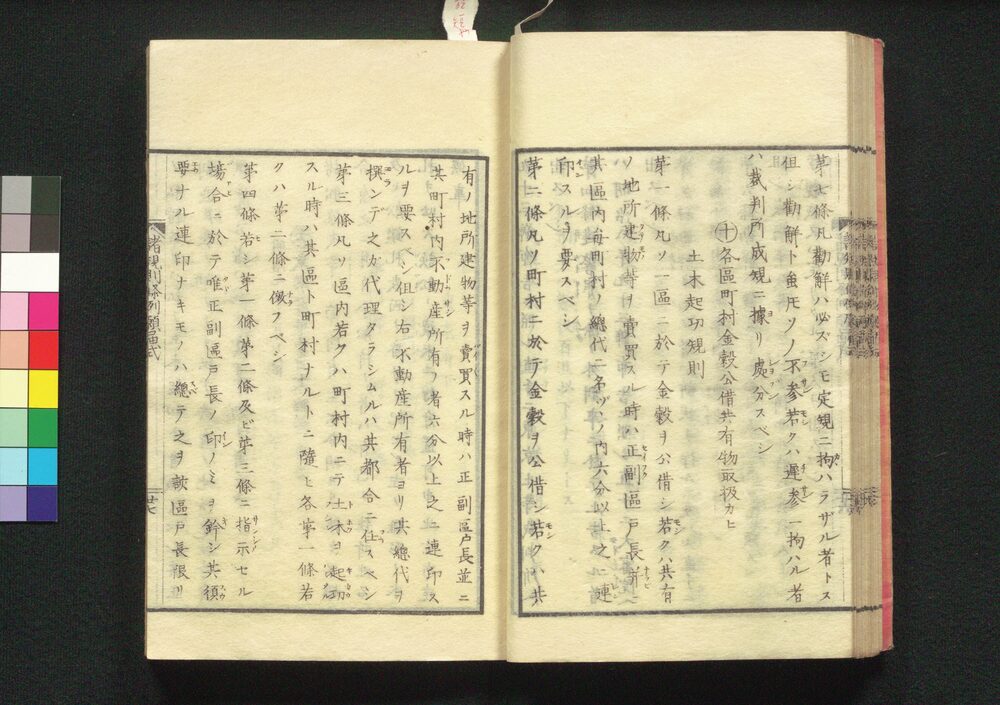 第七條凡勸解ハ必ズシモ定規ニ拘ハラザル者トス
但シ勸解ト雖𪜈ソノ不参若クハ遅参ニ拘ハル者
ハ裁判所成規ニ據リ處分スベシ
㊉各區町村金穀公借共有物取扱カヒ
土木起功規則
第一條凡ソ一區ニ於テ金穀ヲ公借シ若クハ共有
ノ地所建物等ヲ賣買スル時ハ正副區戸長并
其區内毎町村ノ總代二名ヅヽノ内六分以上之ニ連
印スルヲ要スベシ
第二條凡ソ町村ニ於テ金穀ヲ公借シ若クハ共
有ノ地所建物等ヲ賣買スル時ハ正副區戸長並ニ
其町村内不動産所有ノ者六分以上之ニ連印ス
ルヲ要スベシ但シ右不動産所有者ヨリ其總代ヲ
撰ンデ之カ代理タラシムルハ其都合ニ任スベシ
第三條凡ソ區内若クハ町村内ニテ土木ヲ起功
スル時ハ其區ト町村ナルトニ隨ヒ各第一條若
クハ第二條ニ傚フベシ
第四條若シ第一條第二條及ビ第三條ニ指示セル
場合ニ於テ唯正副區戸長ノ印ノミヲ鈐シ其須
要ナル連印ナキモノハ總テ之ヲ該區戸長限リ
諸規則條列願届式
廿七